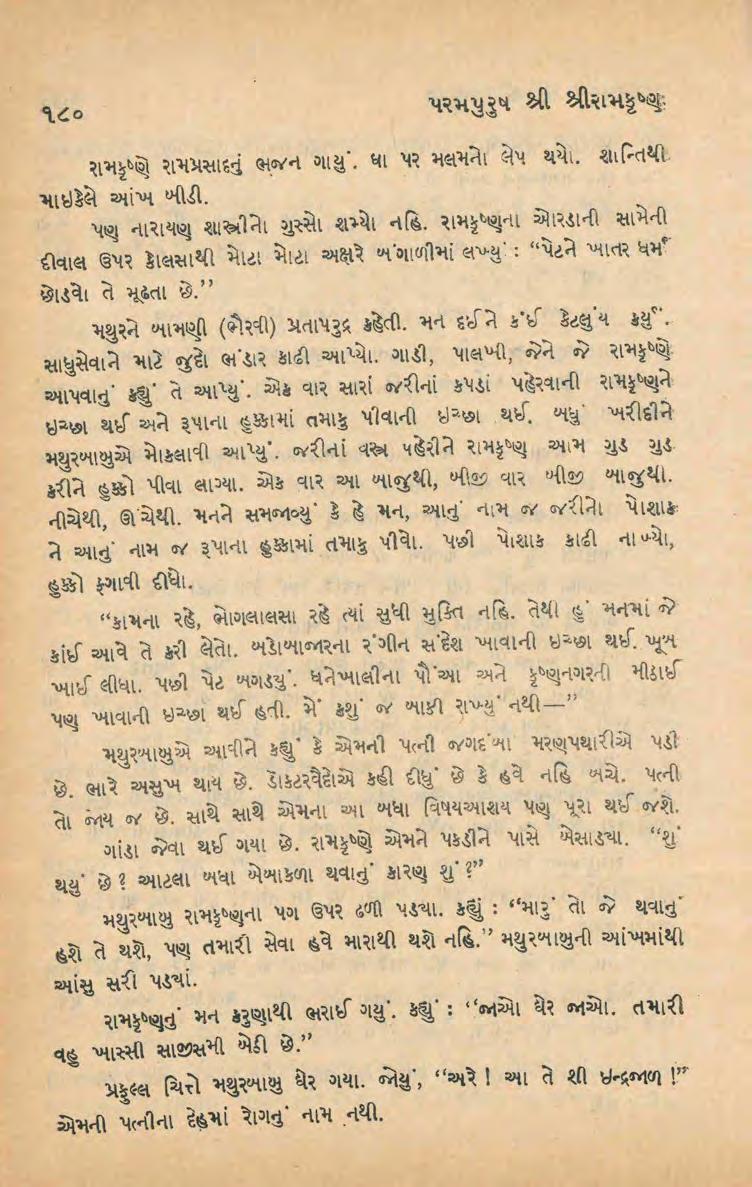 ૧૮૦
પરમપુરુષ શ્રી શ્રીરામકૃષ્ણ
રામકૃષ્ણે રામપ્રસાદનું ભજન ગાયું. ઘા પર મલમનો લેપ થયો. શાન્તિથી
માઇકેલે આંખ બીડી.
પણ નારાયણ શાસ્ત્રીનો ગુસ્સો શમ્યો નહિ. રામકૃષ્ણના ઓરડાની સામેની
દીવાલ ઉપર કોલસાથી મોટા મોટા અક્ષરે બંગાળીમાં લખ્યું : “પેટને ખાતર ધર્મ
છોડવો તે મૂઢતા છે.”
મથુરને બામણી (ભૈરવી) પ્રતાપરુદ્ર કહેતી. મન દઈને કંઈ કેટલુંય કર્યું.
સાધુસેવાને માટે જુદો ભંડાર કાઢી આપ્યો. ગાડી, પાલખી, જેને જે રામકૃષ્ણે
આપવાનું કહ્યું તે આપ્યું. એક વાર સારાં જરીનાં કપડાં પહેરવાની રામકૃષ્ણને
ઇચ્છા થઈ અને રૂપાના હુક્કામાં તમાકુ પીવાની ઇચ્છા થઈ. બધું ખરીદીને
મથુરબાબુએ મોકલાવી આપ્યું. જરીનાં વસ્ત્ર પહેરીને રામકૃષ્ણ આમ ગુડ ગુડ
કરીને હુક્કો પીવા લાગ્યા. એક વાર આ બાજુથી, બીજી વાર બીજી બાજુથી.
નીચેથી, ઊંચેથી. મનને સમજાવ્યું કે હે મન, આનું નામ જ જરીનો પોશાક
ને આનું નામ જ રૂપાના હુક્કામાં તમાકુ પીવો. પછી પોશાક કાઢી નાખ્યો,
હુક્કો ફગાવી દીધો.
“કામના રહે, ભોગલાલસા રહે ત્યાં સુધી મુક્તિ નહિ. તેથી હું મનમાં જે
કાંઈ આવે તે કરી લેતો. બડોબાજારના રંગીન સંદેશ ખાવાની ઇચ્છા થઈ. ખૂબ
ખાઈ લીધા. પછી પેટ બગડયું. ધનેખાલીના પૌંઆ અને કૃષ્ણનગરની મીઠાઈ
પણ ખાવાની ઇચ્છા થઈ હતી. મેં કશું જ બાકી રાખ્યું નથી—”
મથુરબાબુએ આવીને કહ્યું કે એમની પત્ની જગદંબા મરણપથારીએ પડી
છે. ભારે અસુખ થાય છે. ડૉકટરવૈદોએ કહી દીધું છે કે હવે નહિ બચે. પત્ની
તો જાય જ છે. સાથે સાથે એમના આ બધા વિષયઆશય પણ પૂરા થઈ જશે.
ગાંડા જેવા થઈ ગયા છે. રામકૃષ્ણે એમને પકડીને પાસે બેસાડયા. “શું
થયું છે? આટલા બધા બેબાકળા થવાનું કારણ શું?”
મથુરબાબુ રામકૃષ્ણના પગ ઉપર ઢળી પડયા. કહ્યું : “મારું તો જે થવાનું
હશે તે થશે, પણ તમારી સેવા હવે મારાથી થશે નહિ.” મથુરબાબુની આંખમાંથી
આંસુ સરી પડયાં.
રામકૃષ્ણનું મન કરુણાથી ભરાઈ ગયું. કહ્યું : “જાઓ ઘેર જાઓ. તમારી
વહુ ખાસ્સી સાજીસમી બેઠી છે.”
પ્રફુલ્લ ચિત્તે મથુરબાબુ ઘેર ગયા. જોયું, “અરે ! આ તે શી ઇન્દ્રજાળ !”
એમની પત્નીના દેહમાં રોગનું નામ નથી.